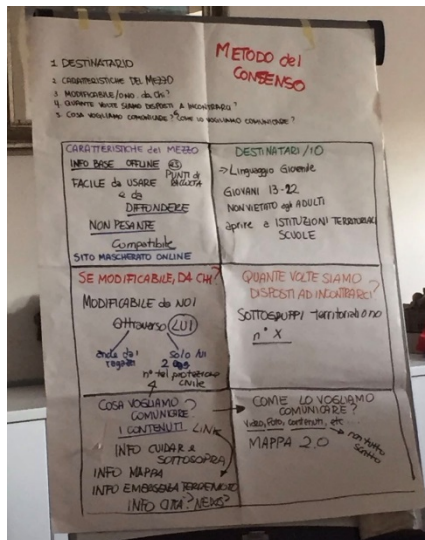 METODO del
CONSENSO
1 DESTINATARIO
2 CARATTERISTICHE DEL MEZZO
3 MODIFICABILE/O NO. da CHI?
4 QUANTE VOLTE SIAMO DISPOSTI A INCONTRARCI?
5 COSA VOGLIAMO COMUNICARE? COME LO VOGLIAMO COMUNICARE?
CARATTERISTICHE del MEZZO
INFO BASE OFFLINE
PUNTI di
RACCOLTA
FACILE da USARE
e da
DIFFONDERE
NON PESANTE
Compatibile
SITO MASCHERATO ONLINE
DESTINATARI/IO
→ Linguaggio Giovanile
GIOVANI 13-22
NON VIETATO agli ADULTI
aprire a ISTITUZIONI TERRITORIALI
SCUOLE
SE MODIFICABILE, DA CHI?
MODIFICABILE da NOI
attraverso LUI
anche dai
ragazzi
solo lui
n° tel protezione
civile
QUANTE VOLTE SIAMO
DISPOSTI AD INCONTRARCI?
SOTTOGRUPPI territoriali o no
n° X
COSA VOGLIAMO
COMUNICARE?
I CONTENUTI
LINK
INFO CUIDAR e
SOTTOSOPRA
INFO MAPPA
INFO EMERGENZA TERREMOTO
INFO CITTÀ? NEWS?
COME LO VOGLIAMO
COMUNICARE?
Video, Foto, contenuti, etc...
non tutto
scritto
MAPPA 2.0